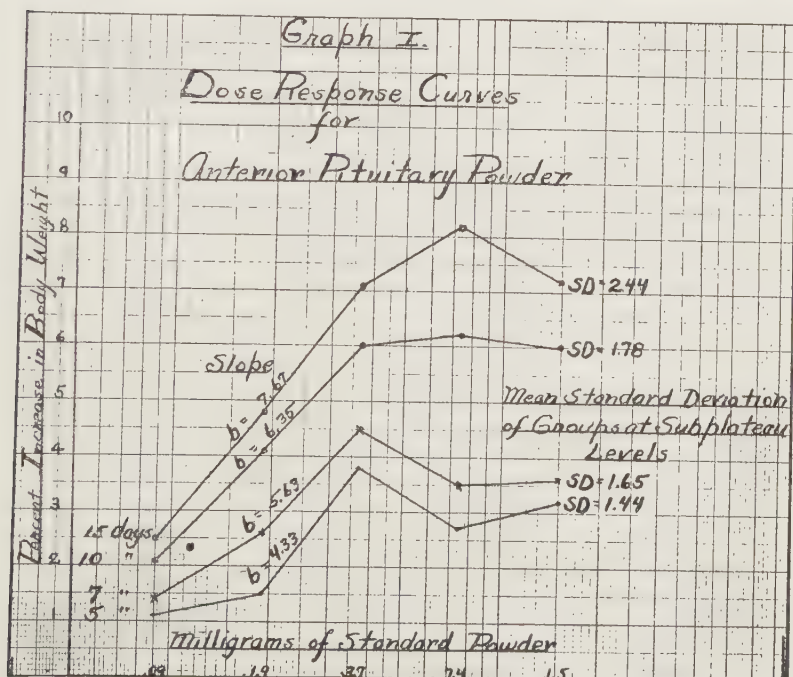 Graph I.
Dose Response Curves
for
Anterior Pituitary Powder
Percent Increase in Body Weight
10
9
8
7
6
5
4
3
2
Slope
b = 7.67
b = 6.35
b = 5.63
b = 4.33
SD=2.44
SD=1.78
Mean Standard Deviation
of Groups at Subplateau
Levels
SD=1.65
SD=1.44
15 days
10 "
7 "
5 "
Milligrams of Standard Powder
.09 1.5